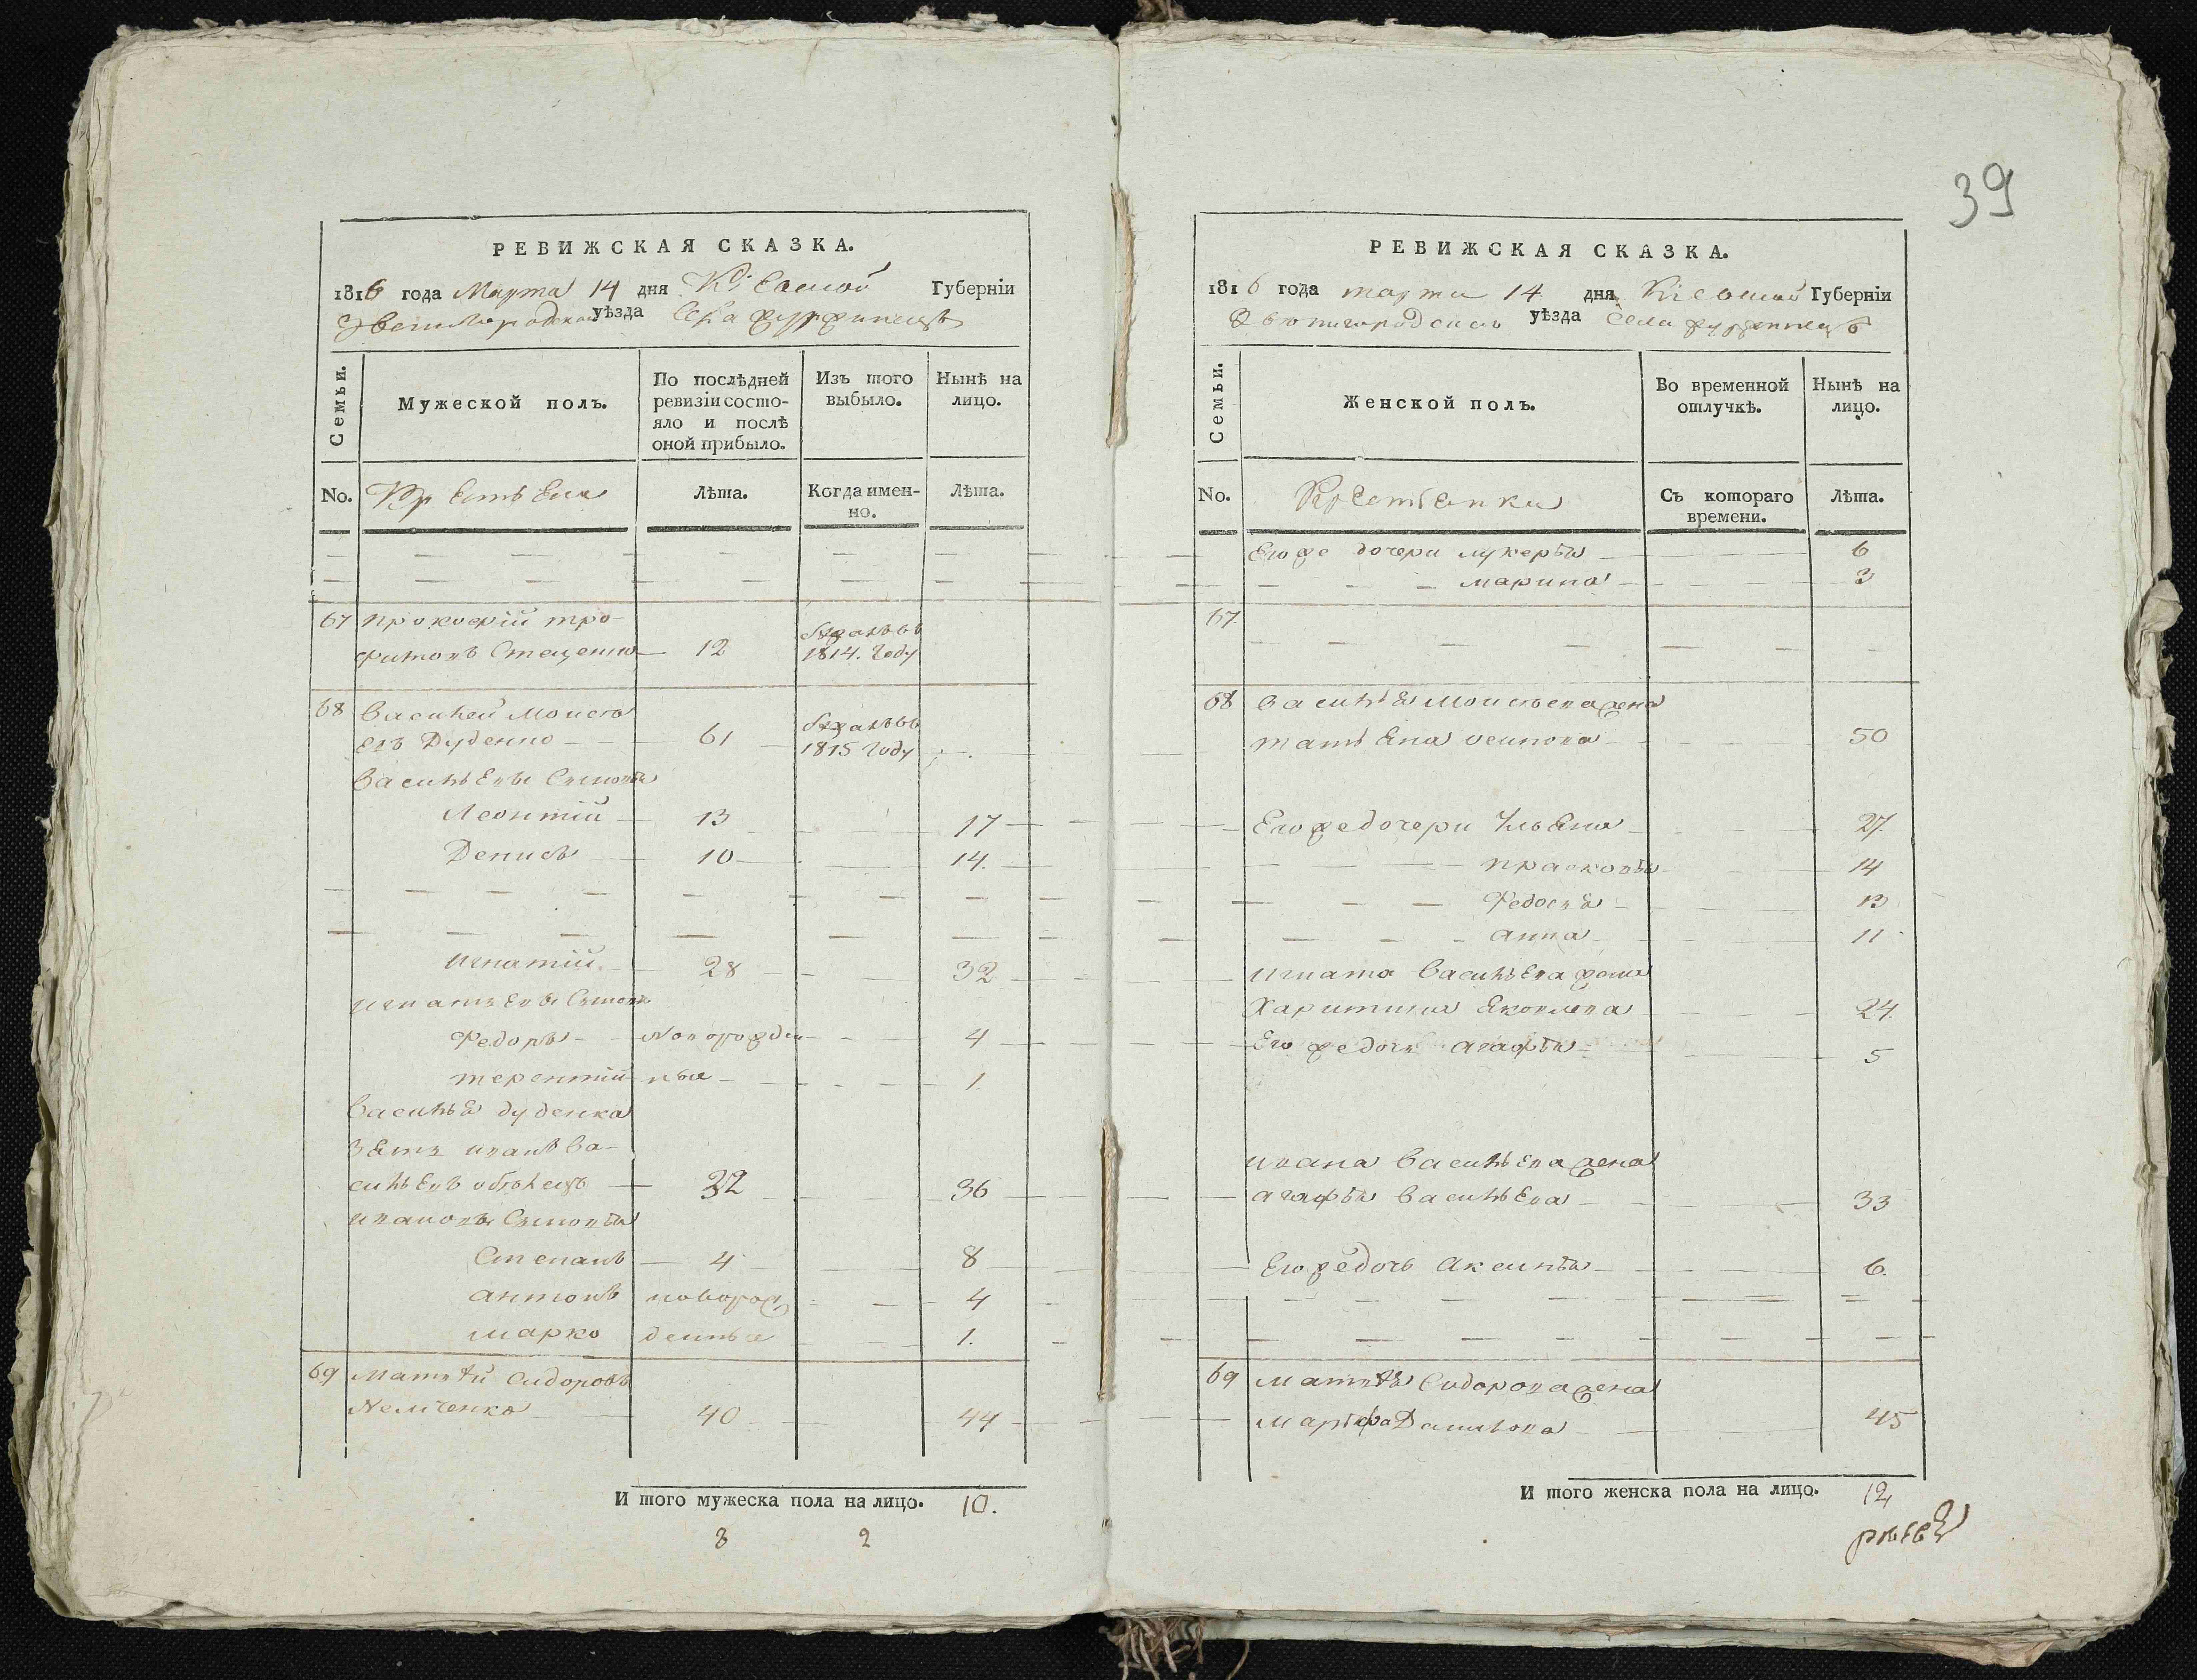 39
РЕВИЖСКАЯ СКАЗКА.
1816 года Марта 14 дня Кіевской Губерніи
Звенигородской уѣзда Села
Семьи.
Мужеской полъ.
По послѣдней ревизіи состо-
яло и послѣ оной прибыло.
Изъ того выбыло.
Нынѣ на лицо.
No.
Лѣта.
Когда имен-
но.
Лѣта.
67 Прокофій Тро-
фимовъ Стеценко 12
1814. году
68 Василей Моисѣ
евъ Дуденко 61
1815 году
Васильевы Сыновья
Леонтій 13 17
Денисъ 10 14.
Игнатій 28 32
Игнатьевы Сыновья
Федоръ Новорожден 4
Терентій ные 1.
Василья Дуденка
зять Иванъ Ва-
сильевъ 32 36
Ивановы Сыновья
Степанъ 4 8
Антонъ новорож 4
Марко денные 1.
69 Матвѣй Сидоровъ
Немченко 40 44
И того мужеска пола на лицо. 10.
8 2
РЕВИЖСКАЯ СКАЗКА.
1816 года марта 14 дня Кіевской Губерніи
Звенигородской уѣзда Села
Семьи.
Женской полъ.
Во временной отлучкѣ.
Нынѣ на лицо.
No.
Крестьянки
Съ котораго времени.
Лѣта.
Его же дочери лукерья 6
марина 3
67.
68 Василья Моисѣева жена
татьяна осипова 50
Его же дочери Ульяна 27.
прасковья 14
Федосья 13
анна 11
игната Васильева жена
Харитина Яковлева 24.
Его же дочь агафья 5
ивана Васильева жена
агафья Васильева 33
Его же дочь Аксинья 6.
69 Матвѣя Сидорова жена
Марфа Данилова 45
И того женска пола на лицо. 12